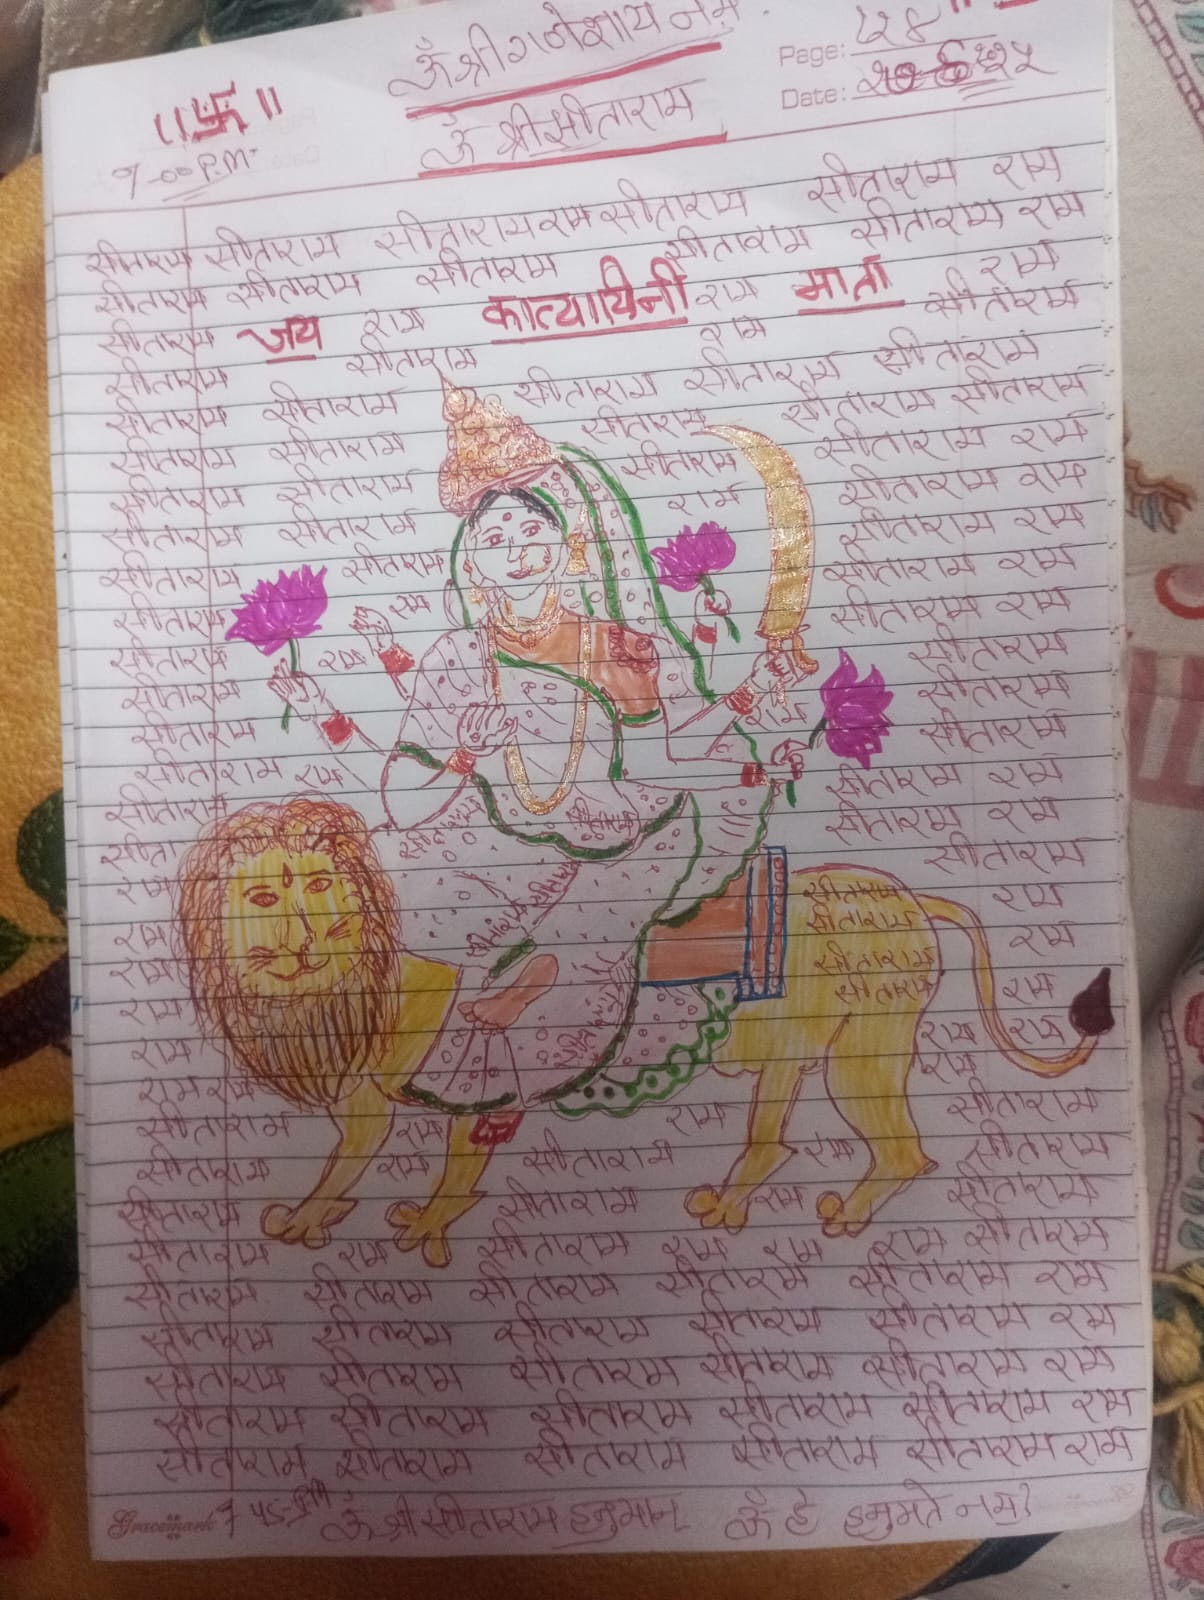 ॐ श्री गणेशाय नमः
Page: ५४
॥卐॥
ॐ श्री सीताराम
Date:
7-00 P.M.
सीताराम सीताराम सीताराम राम सीताराम सीताराम राम
सीताराम सीताराम सीताराम सीताराम सीताराम राम
सीताराम जय राम कात्यायिनी राम माता राम
सीताराम सीताराम राम सीताराम
सीताराम सीताराम सीताराम सीताराम सीताराम
सीताराम सीताराम सीताराम सीताराम सीताराम
सीताराम सीताराम सीताराम सीताराम राम
सीताराम सीताराम राम सीताराम राम
सीताराम सीताराम सीताराम राम
सीताराम राम सीताराम राम
सीताराम राम सीताराम राम
सीताराम सीताराम
सीताराम राम सीताराम
सीताराम राम सीताराम
सीताराम सीताराम राम
सीता सीताराम राम
राम सीताराम
राम सीताराम राम
राम सीताराम राम
राम सीताराम राम
राम सीताराम राम
राम राम राम राम
सीताराम राम राम सीताराम
सीताराम राम सीताराम राम सीताराम
सीताराम सीताराम राम सीताराम
सीताराम राम सीताराम राम राम राम सीताराम
सीताराम सीताराम सीताराम सीताराम सीताराम राम
सीताराम सीताराम सीताराम सीताराम सीताराम राम
सीताराम सीताराम सीताराम सीताराम सीताराम राम
सीताराम सीताराम सीताराम सीताराम सीताराम राम
सीताराम सीताराम सीताराम सीताराम सीताराम राम
Gracemark 7 45 PM ॐ श्री सीताराम हनुमान ॐ हं हनुमते नमः